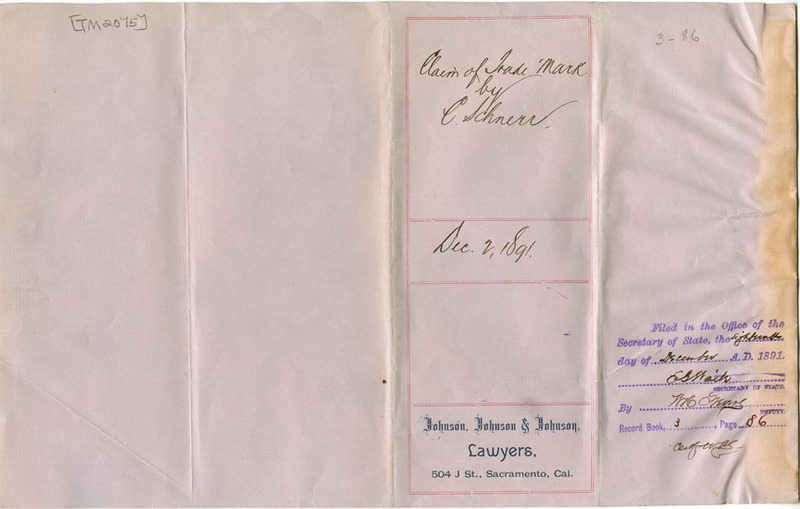 [TM2075]
3-86
Claim of Trade Mark
by
C. Schnerr.
Dec. 2, 1891.
Johnson, Johnson & Johnson,
Lawyers,
504 J St., Sacramento, Cal.
Filed in the Office of the
Secretary of State, the Eighteenth
day of December A. D. 1891.
SECRETARY OF STATE.
By
DEPUTY.
Record Book, 3, Page 86